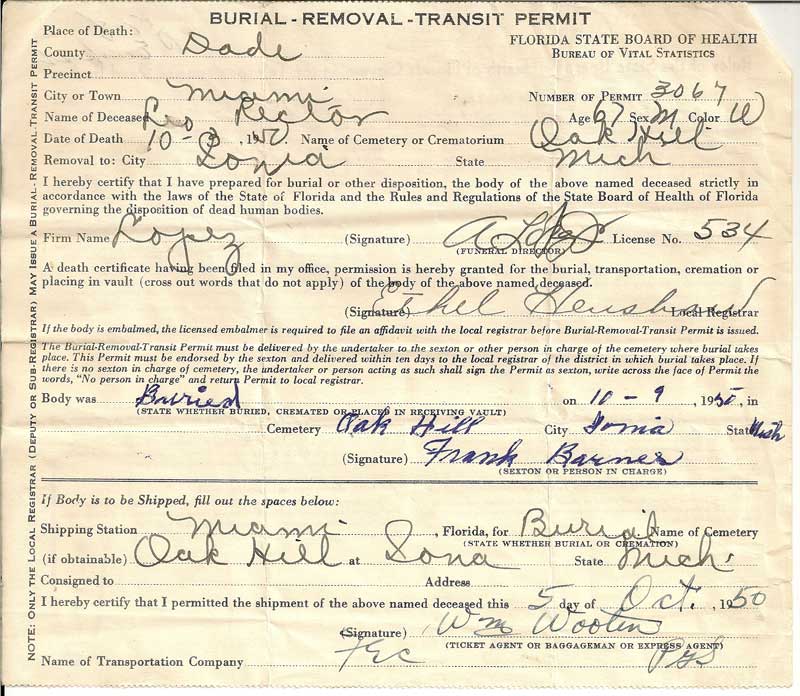 BURIAL - REMOVAL - TRANSIT PERMIT
Place of Death:
FLORIDA STATE BOARD OF HEALTH
County Dade
BUREAU OF VITAL STATISTICS
Precinct
City or Town Miami NUMBER OF PERMIT 3067
Name of Deceased Leo Rector Age 67 Sex M Color W
Date of Death 10-3, 1950 Name of Cemetery or Crematorium Oak Hill
Removal to: City Ionia State Mich
I hereby certify that I have prepared for burial or other disposition, the body of the above named deceased strictly in
accordance with the laws of the State of Florida and the Rules and Regulations of the State Board of Health of Florida
governing the disposition of dead human bodies.
Firm Name Lopez (Signature) A Lopez License No. 534
(FUNERAL DIRECTOR)
A death certificate having been filed in my office, permission is hereby granted for the burial, transportation, cremation or
placing in vault (cross out words that do not apply) of the body of the above named deceased.
(Signature) Ethel Henshaw Local Registrar
If the body is embalmed, the licensed embalmer is required to file an affidavit with the local registrar before Burial-Removal-Transit Permit is issued.
The Burial-Removal-Transit Permit must be delivered by the undertaker to the sexton or other person in charge of the cemetery where burial takes
place. This Permit must be endorsed by the sexton and delivered within ten days to the local registrar of the district in which burial takes place. If
there is no sexton in charge of cemetery, the undertaker or person acting as such shall sign the Permit as sexton, write across the face of Permit the
words, "No person in charge" and return Permit to local registrar.
Body was Buried on 10-9, 1950, in
(STATE WHETHER BURIED, CREMATED OR PLACED IN RECEIVING VAULT)
Cemetery Oak Hill City Ionia State Mich
(Signature) Frank Barnes
(SEXTON OR PERSON IN CHARGE)
If Body is to be Shipped, fill out the spaces below:
Shipping Station Miami, Florida, for Burial Name of Cemetery
(STATE WHETHER BURIAL OR CREMATION)
(if obtainable) Oak Hill at Iona State Mich.
Consigned to Address
I hereby certify that I permitted the shipment of the above named deceased this 5 day of Oct., 1950
(Signature) Wm Wooten
(TICKET AGENT OR BAGGAGEMAN OR EXPRESS AGENT)
Name of Transportation Company FEC
NOTE: ONLY THE LOCAL REGISTRAR (DEPUTY OR SUB-REGISTRAR) MAY ISSUE A BURIAL-REMOVAL-TRANSIT PERMIT